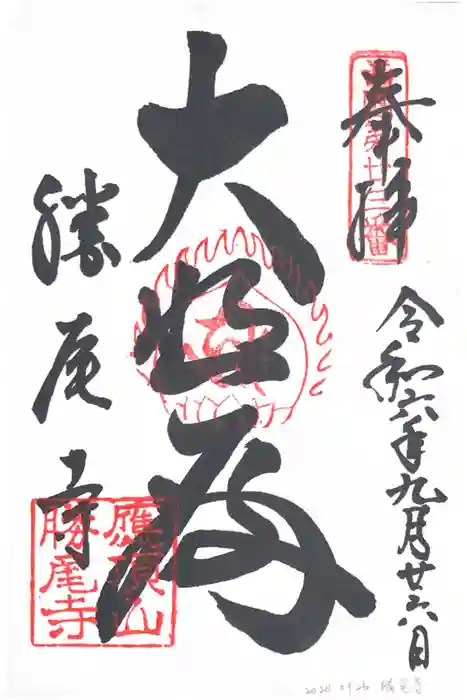 奉拝
西國第廿三番
令和六年九月廿六日
大悲殿
勝尾寺
應頂山
勝尾寺
2024 09 26 勝尾寺